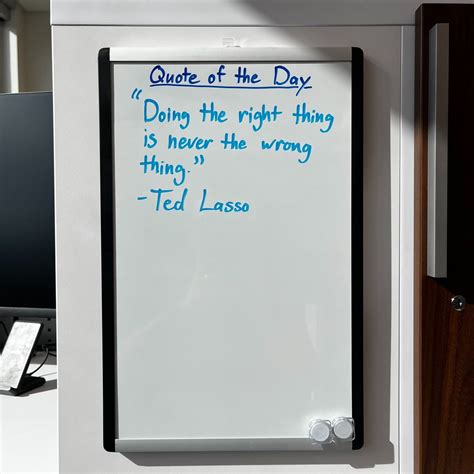 Quote of the Day
"Doing the right thing
is never the wrong
thing."
-Ted Lasso